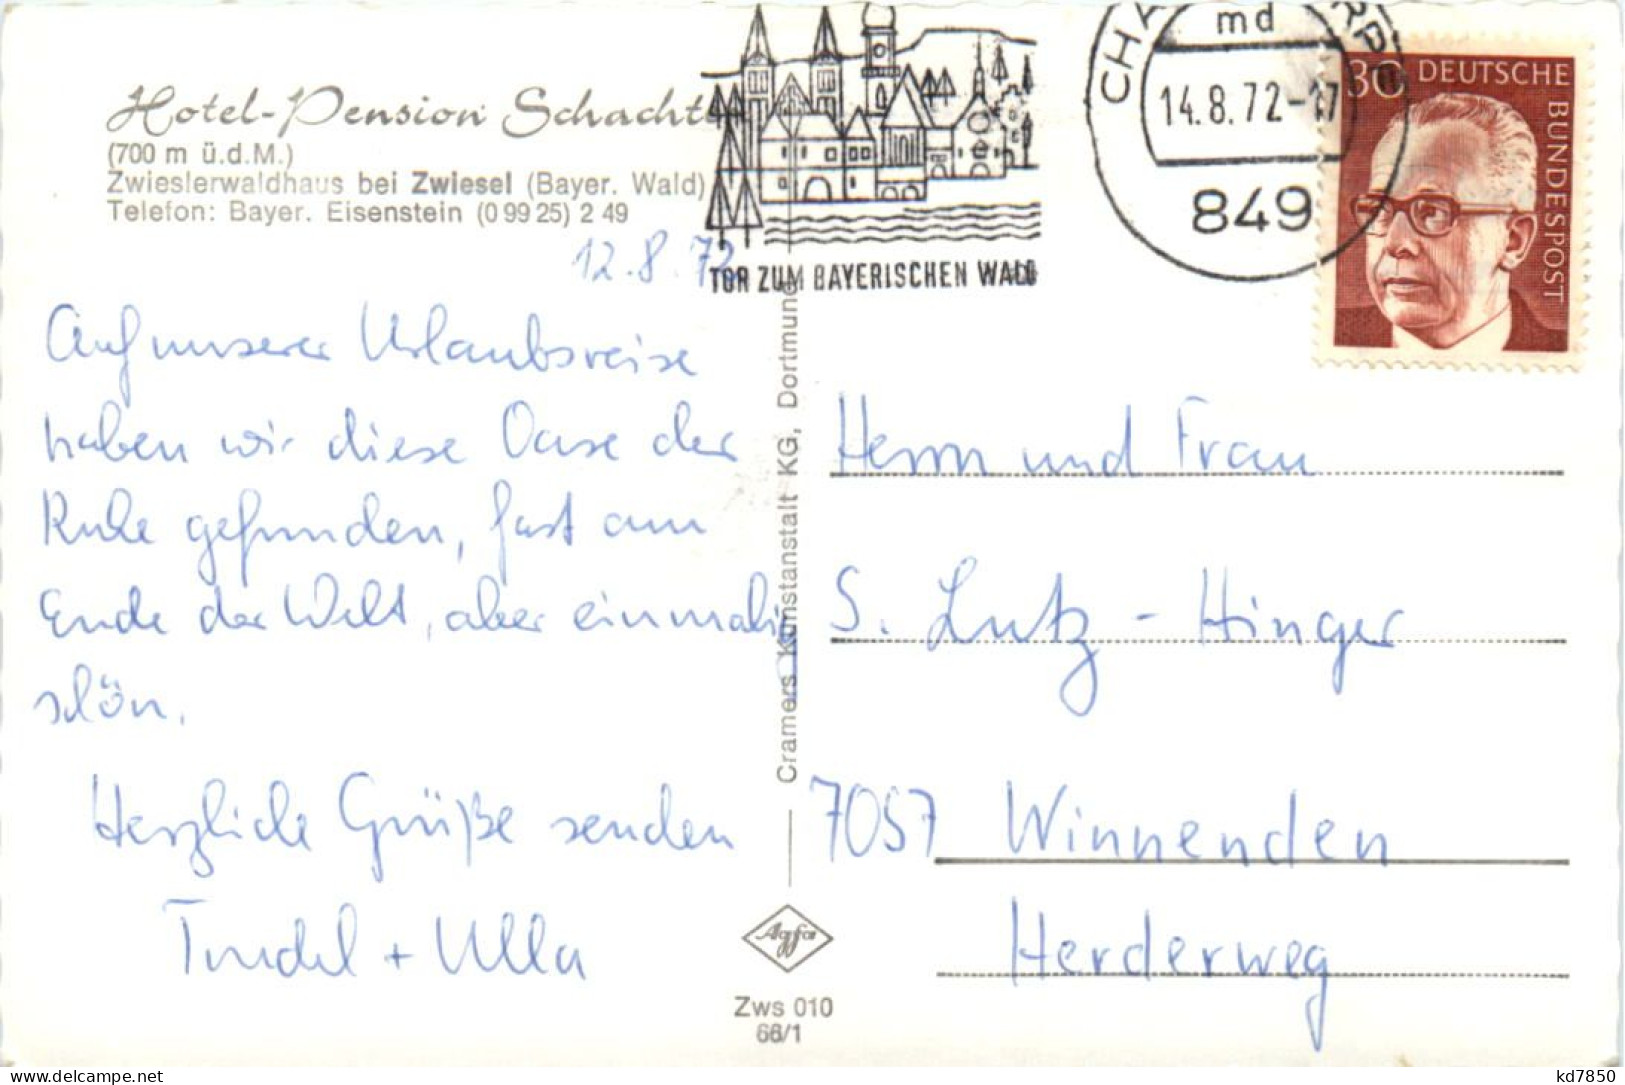 Hotel-Pension Schacht
(700 m ü.d.M.)
Zwieslerwaldhaus bei Zwiesel (Bayer. Wald)
Telefon: Bayer. Eisenstein (0 99 25) 2 49
12.8.72
TOR ZUM BAYERISCHEN WALD
CHA
md
14.8.72-17
849
30 DEUTSCHE
BUNDESPOST
Auf unserer Urlaubsreise
haben wir diese Oase der
Ruhe gefunden, fast am
Ende der Welt, aber einmalig
schön.
Herzliche Grüße senden
Trudel + Ulla
Cramers Kunstanstalt KG, Dortmund
Herrn und Frau
S. Lutz - Hinger
7057 Winnenden
Herderweg
Agfa
Zws 010
66/1
kd7850